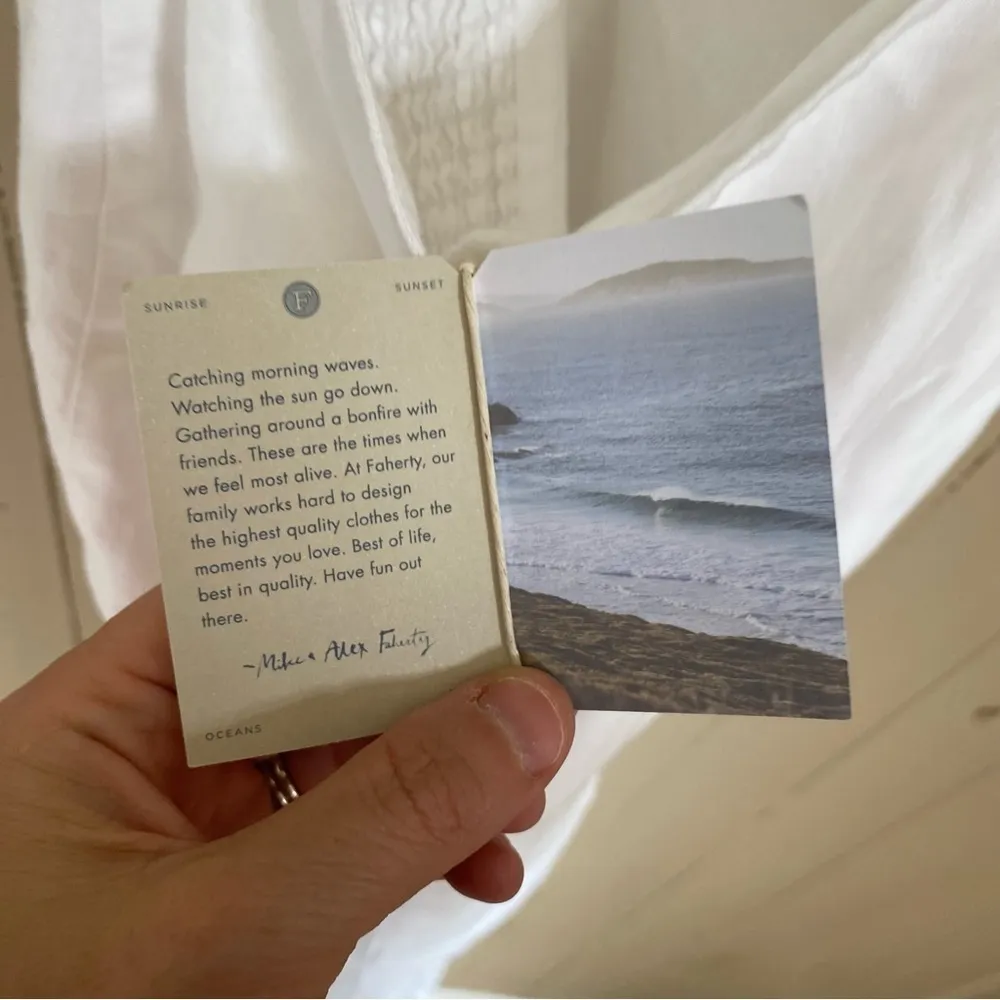 SUNRISE
F
SUNSET
Catching morning waves.
Watching the sun go down.
Gathering around a bonfire with
friends. These are the times when
we feel most alive. At Faherty, our
family works hard to design
the highest quality clothes for the
moments you love. Best of life,
best in quality. Have fun out
there.
~Mike & Alex Faherty
OCEANS